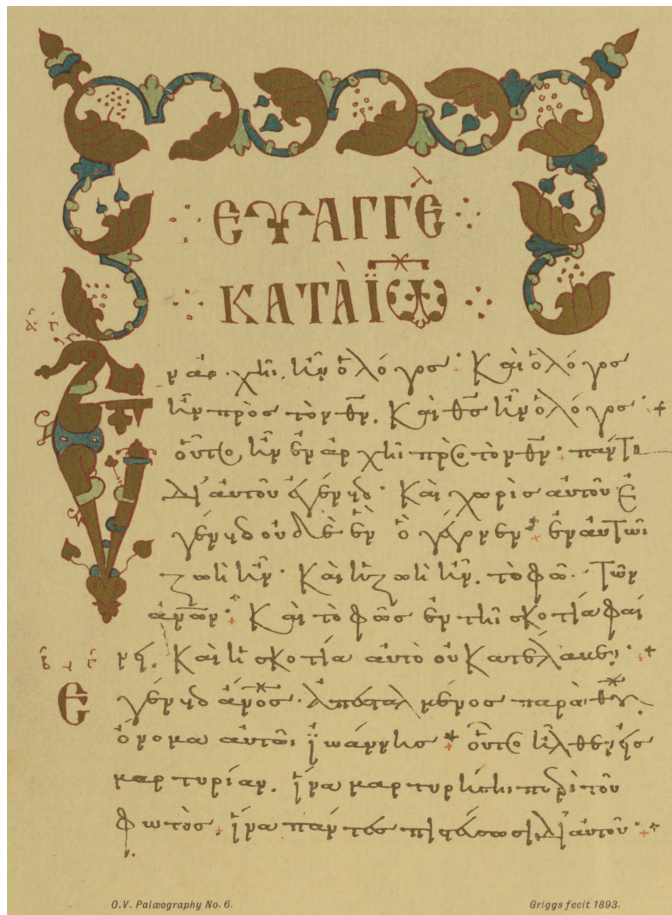 ΕΥΑΓΓΕλ
ΚΑΤᾺ ΪΩ
Ἐν ἀρχῆι ἦν ὁ λόγος· Καὶ ὁ λόγος
ἦν πρὸς τὸν θν̄. Καὶ θς̄ ἦν ὁ λόγος· +
οὗτος ἦν ἐν ἀρχῆι πρὸς τὸν θν̄· πάντα
δι' αὐτοῦ ἐγένετο· Καὶ χωρὶς αὐτοῦ ἐ
γένετο οὐδὲ ἓν ὃ γέγονεν· + ἐν αὐτῶι
ζωὴ ἦν· Καὶ ἡ ζωὴ ἦν. τὸ φῶς τῶν
ἀν̄ων· + Καὶ τὸ φῶς ἐν τῆι σκοτία φαί
νει. Καὶ ἡ σκοτία αὐτὸ οὐ κατέλαβεν· +
Ἐγένετο ἄν̄ος· ἀπεσταλμένος παρὰ θῡ·
ὄνομα αὐτῶι ἰωάννης + οὗτος ἦλθεν εἰς
μαρτυρίαν. ἵνα μαρτυρήσηι περὶ τοῦ
φωτὸς. + ἵνα πάντες πιστεύσωσι δι' αὐτοῦ· +
O.V. Palæography No. 6. Griggs fecit 1893.